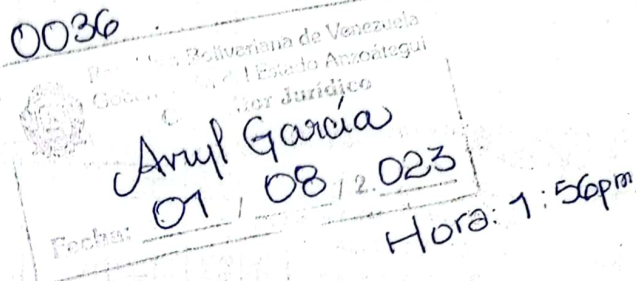 0036
Bolivariana de Venezuela
Estado Anzoátegui
Jurídico
García
Fecha: 01 / 08 / 2.023
Hora: 1:56pm